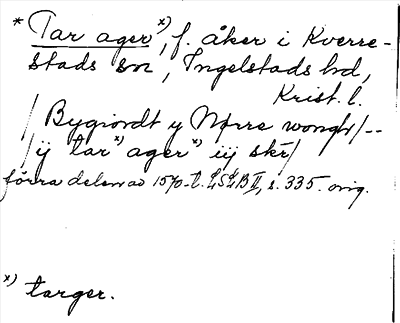 * Tar ager x), f. åker i Kverre-
stads sn, Ingelstads hd,
Krist. l.
/ Bygiordt y Nørre wongh /--
/ ij tar x) ager x) iiij skr /
förra delen av 1570-t. LSLB II, s. 335. orig.
x) targer.